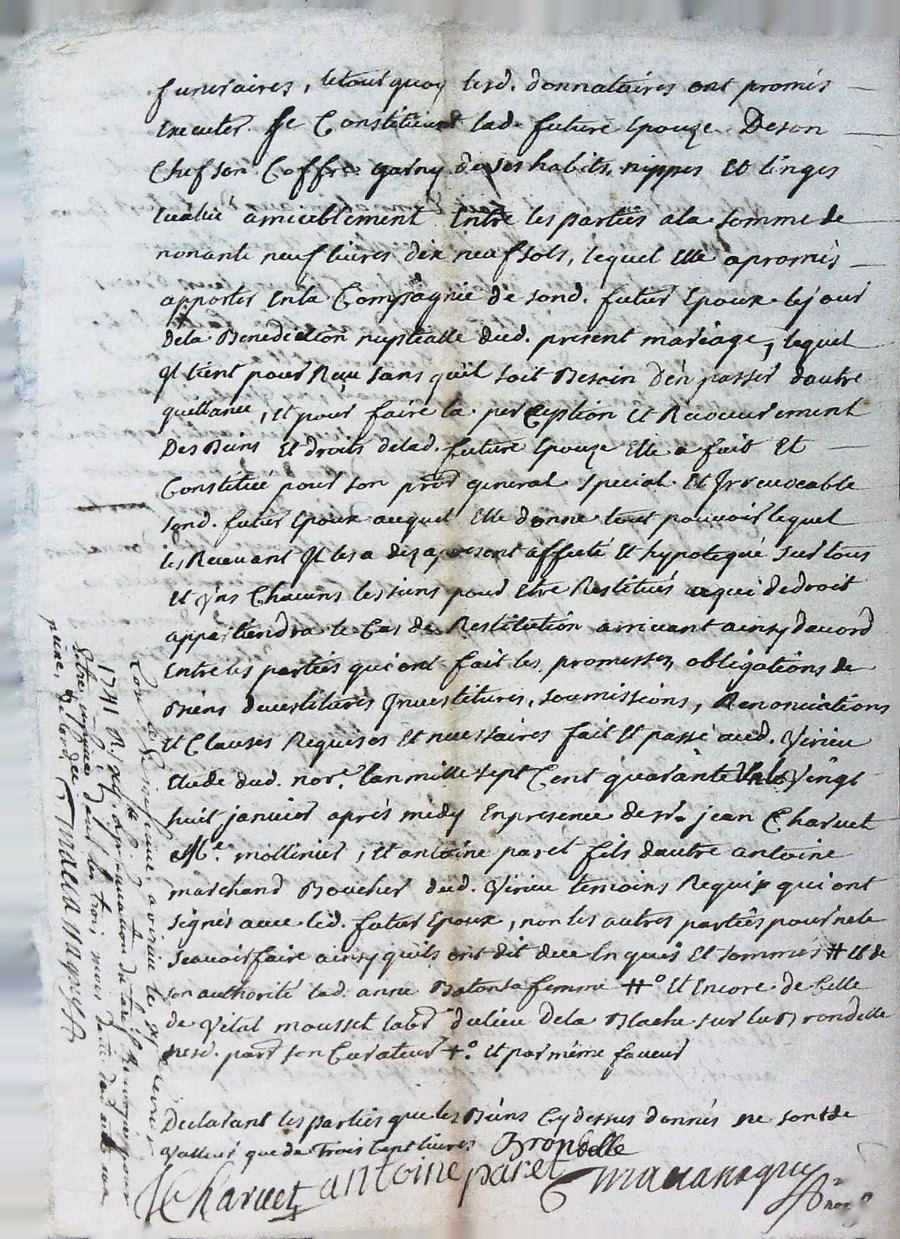 funeraires, letout quoy lesd. donnataires ont promis
Executer. Se Constituant lad. future Epouze Deson
Chef son Coffre garny de ses habits, nippes Et linges
Evalué amiceblement Entre les parties ala somme de
nonante neuf livres dix neuf sols, lequel Elle apromis
apporter Enla Compagnie de sond. futur Epoux lejour
dela Benediction nuptialle dud. present mariage, lequel
Il tient pour Reçu sans qu'il soit Besoin d'en passer dautre
quittance, Et pour faire la perception Et Recouvrement
Des Biens Et droits delad. future Epouze Elle a fait Et
Constitué pour son pror general special Et Irrevocable
sond. futur Epoux auquel Elle donne tout pouvoir lequel
les Recevant Il les a des apresent affecté Et hypotequé sur tous
Et Uns Chacuns les siens pour Etre Restitués aqui dedroit
appartiendra le Cas de Restitution arrivant ainsy daccord
Entre les parties qui ont fait les promesses obligations de
Biens devestitures Investitures, soumissions, Renonciations
Et Clauses Requises Et necessaires fait Et passé aud. Virieu
Etude dud. nore. lan mille sept Cent quarante Un le Vingt
huit janvier après midy Enpresence de sr. jean Charvet
Me. mollinier, Et antoine paret fils dautre antoine
marchand Boucher dud. Virieu temoins Requis qui ont
signés avec led. futur Epoux, non les autres parties pour nele
scavoir faire ainsy quils ont dit deue Enquis Et sommés # Et de
son authorité lad. anne sa femme #o Et Encore de Celle
de Vital mousset labr dulieu dela Blache sur la Brondelle
part son Curateur +o Et par même faveur
Declarant les parties que les Biens Cy dessus donnés ne sont de
Valleur que de Trois Cent livres Brondelle
JCharvet antoine paret
nore
1741